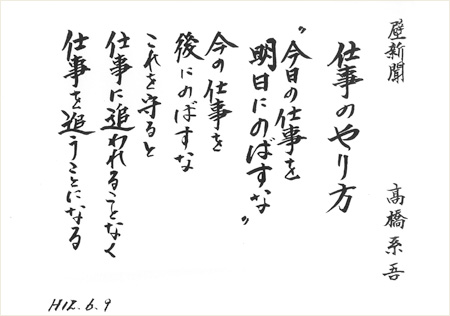 壁新聞
高橋系吾
仕事のやり方
“今日の仕事を
明日にのばすな”
今の仕事を
後にのばすな
これを守ると
仕事に追われることなく
仕事を追うことになる
H12.6.9